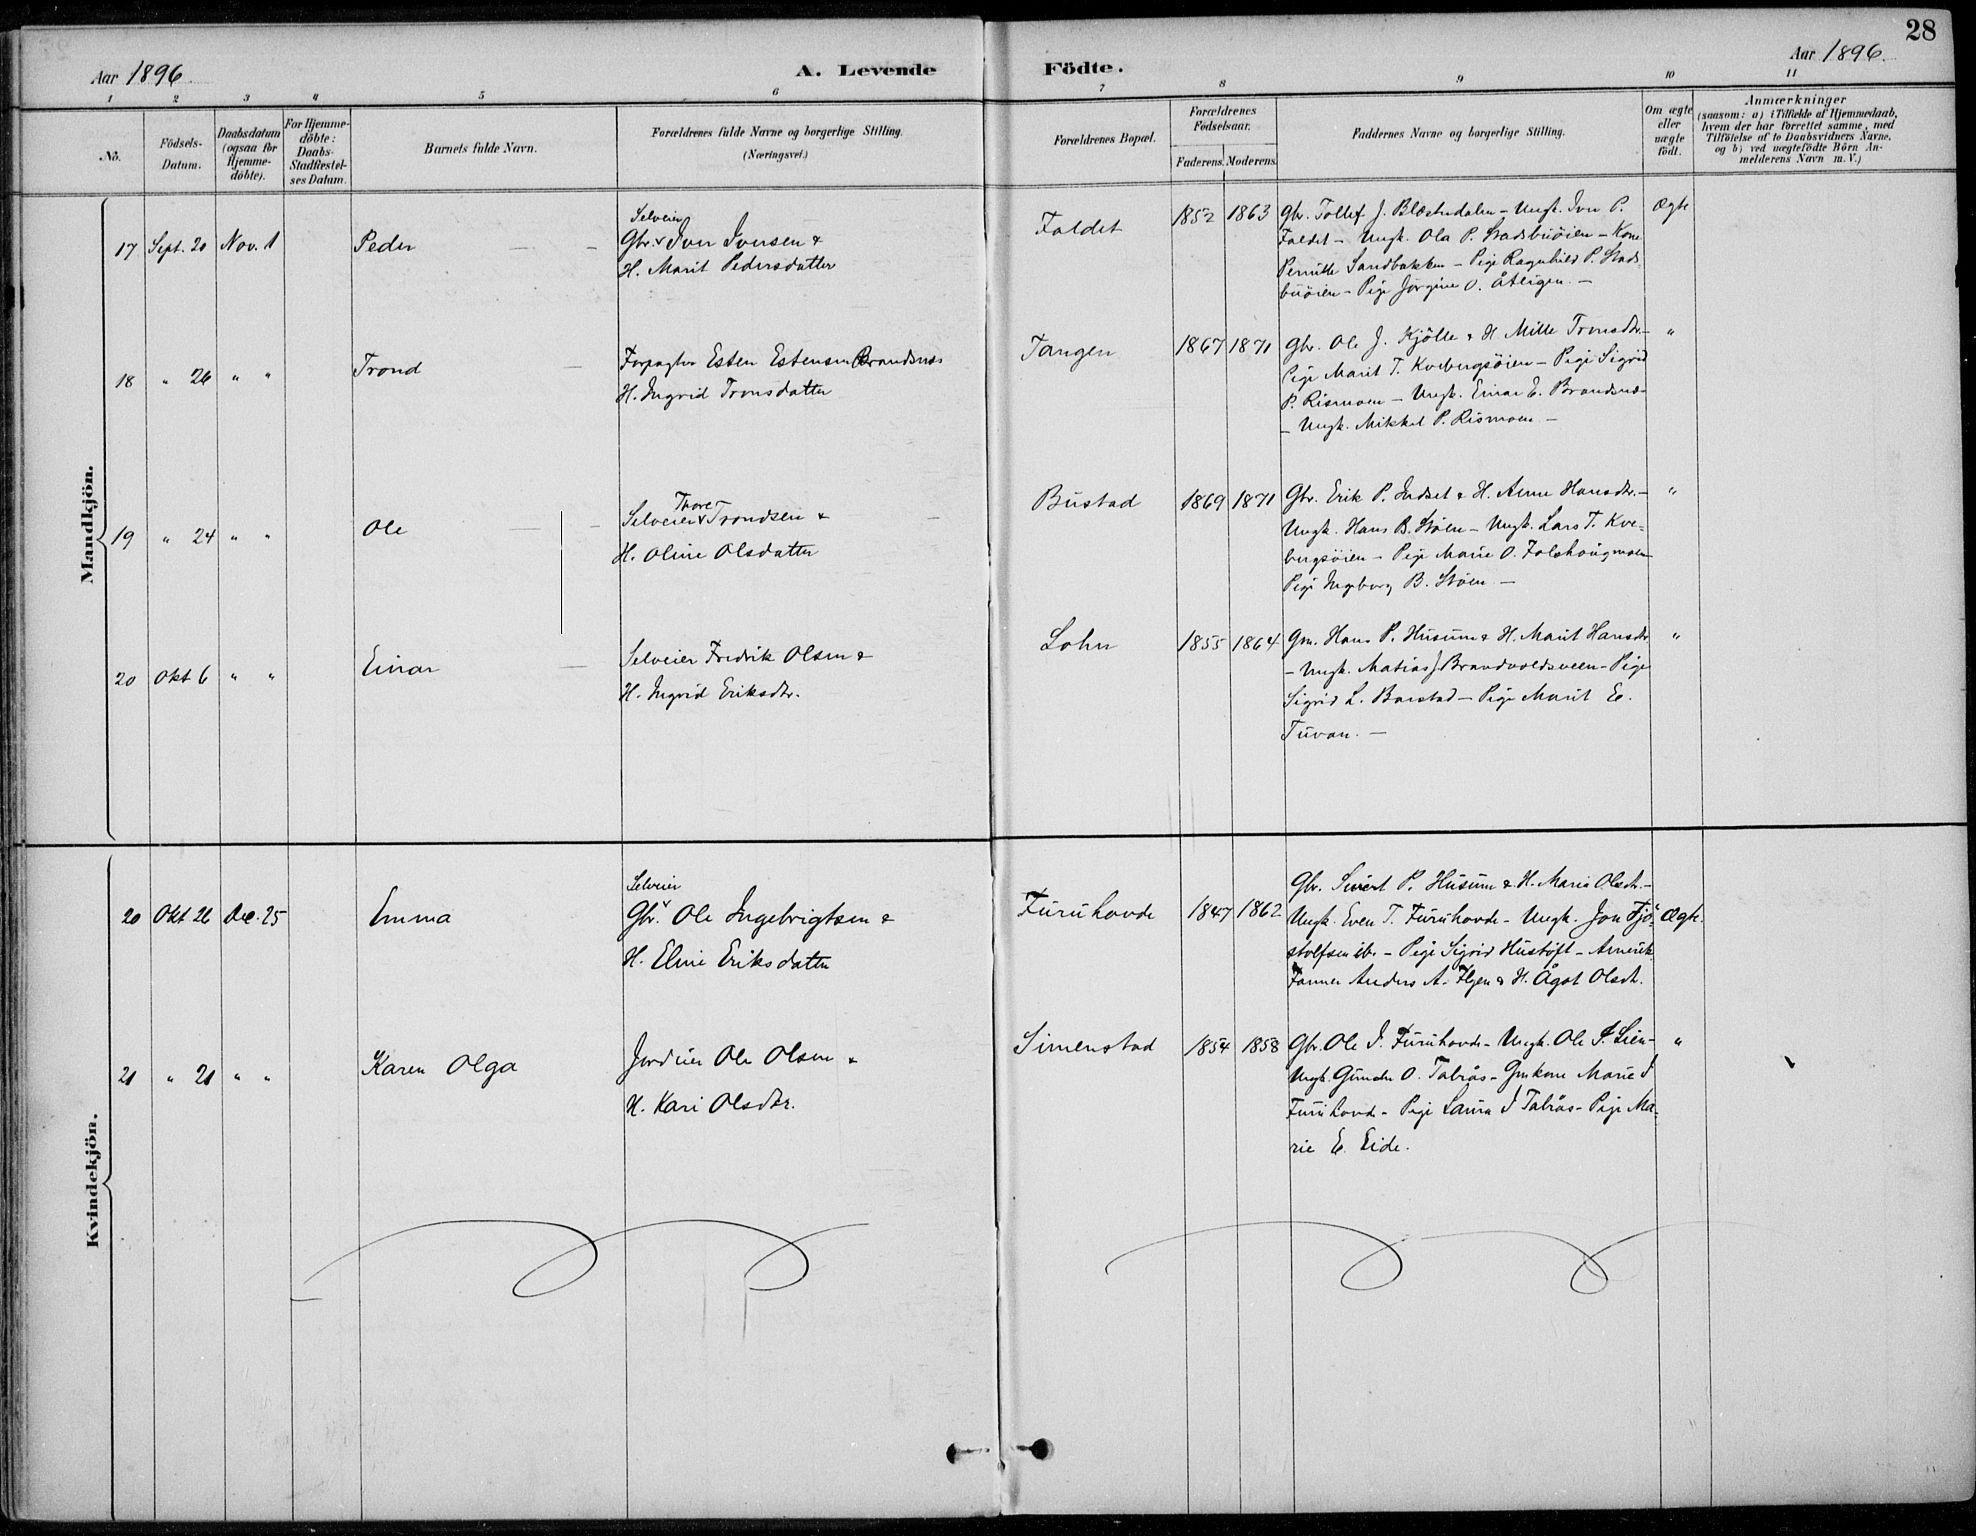 28
Aar 1896.
A. Levende Födte.
Aar 1896.
1 2 3 4 5 6 7 8 9 10 11
No.
Födsels-
Datum.
Daabsdatum
(ogsaa for
Hjemme-
döbte).
For Hjemme-
döbte:
Daabs-
Stadfæstel-
ses Datum.
Barnets fulde Navn.
Forældrenes fulde Navne og borgerlige Stilling.
(Næringsvei.)
Forældrenes Bopæl.
Forældrenes
Födselsaar.
Faderens. Moderens.
Faddernes Navne og borgerlige Stilling.
Om ægte
eller
uægte
födt.
Anmærkninger
(saasom: a) i Tilfælde af Hjemmedaab,
hvem der har forrettet samme, med
Tilföielse af to Daabsvidners Navne,
og b) ved uægtefödte Börn An-
melderens Navn m. V.)
Mandkjön.
17 Sept. 20 Nov. 1 Peder
Selveier
Gbr. Iver Iversen &
H. Marit Pedersdatter
Foldet 1852 1863
Gbr. Tollef J. Blæsterdalen - Ungk. Iver P.
Foldet - Ungk. Ola P. Stadsbuöien - Kone
Pernille Sandbakken - Pige Ragnhild P. Stads-
buöien - Pige Jørgine O. Atligen. -
Ægte
18 " 26 " " Trond
Forpagter Esten Estensen Brandsnes
H. Ingrid Tronsdatter
Tangen 1867 1871
Gbr. Ole J. Kjölle & H. Mille Tronsdtr. -
Pige Marit T. Kvebergsöien - Pige Sigrid
P. Rismoen - Ungk. Einar E. Brandsnes
- Ungk. Mikkel P. Rismoen -
"
19 " 24 " " Ole
Thore
Selveier Trondsen &
H. Oline Olsdatter
Bustad 1869 1871
Gbr. Erik P. Indset & H. Anne Hansdtr. -
Ungk. Hans B. Stöen - Ungk. Lars T. Kve-
bergsöien - Pige Marie O. Folshaugmoen
Pige Ingeborg B. Stöen -
"
20 Okt 6 " " Einar
Selveier Fredrik Olsen &
H. Ingrid Eriksdtr.
Lohn 1855 1864
Gm. Hans P. Husum & H. Marit Hansdtr
- Ungk. Matias J. Brandvoldsveen - Pige
Sigrid L. Barstad - Pige Marit E.
Tuvan. -
"
Kvindekjön.
20 Okt 26 Dec. 25 Emma
Selveier
Gbr. Ole Ingebrigtsen &
H. Eline Eriksdatter
Furuhovde 1847 1862
Gbr. Sivert P. Husum & H. Maria Olsdtr. -
Ungk. Even T. Furuhovde - Ungk. Jon Fjö-
stolfsen ib. - Pige Sigrid Hustöft - Amerik.
Farmer Anders A. Elgen & H. Ågot Olsdt.
Ægte.
21 " 21 " " Karen Olga
Jordeier Ole Olsen &
H. Kari Olsdtr.
Simenstad 1854 1858
Gbr. Ole I. Furuhovde - Ungk. Ole I. Lien -
Ungk. Gunder O. Tabrås - Gmkone Marie I
Furuhovde - Pige Laura I Tabrås - Pige Ma-
rie E. Eide.
"